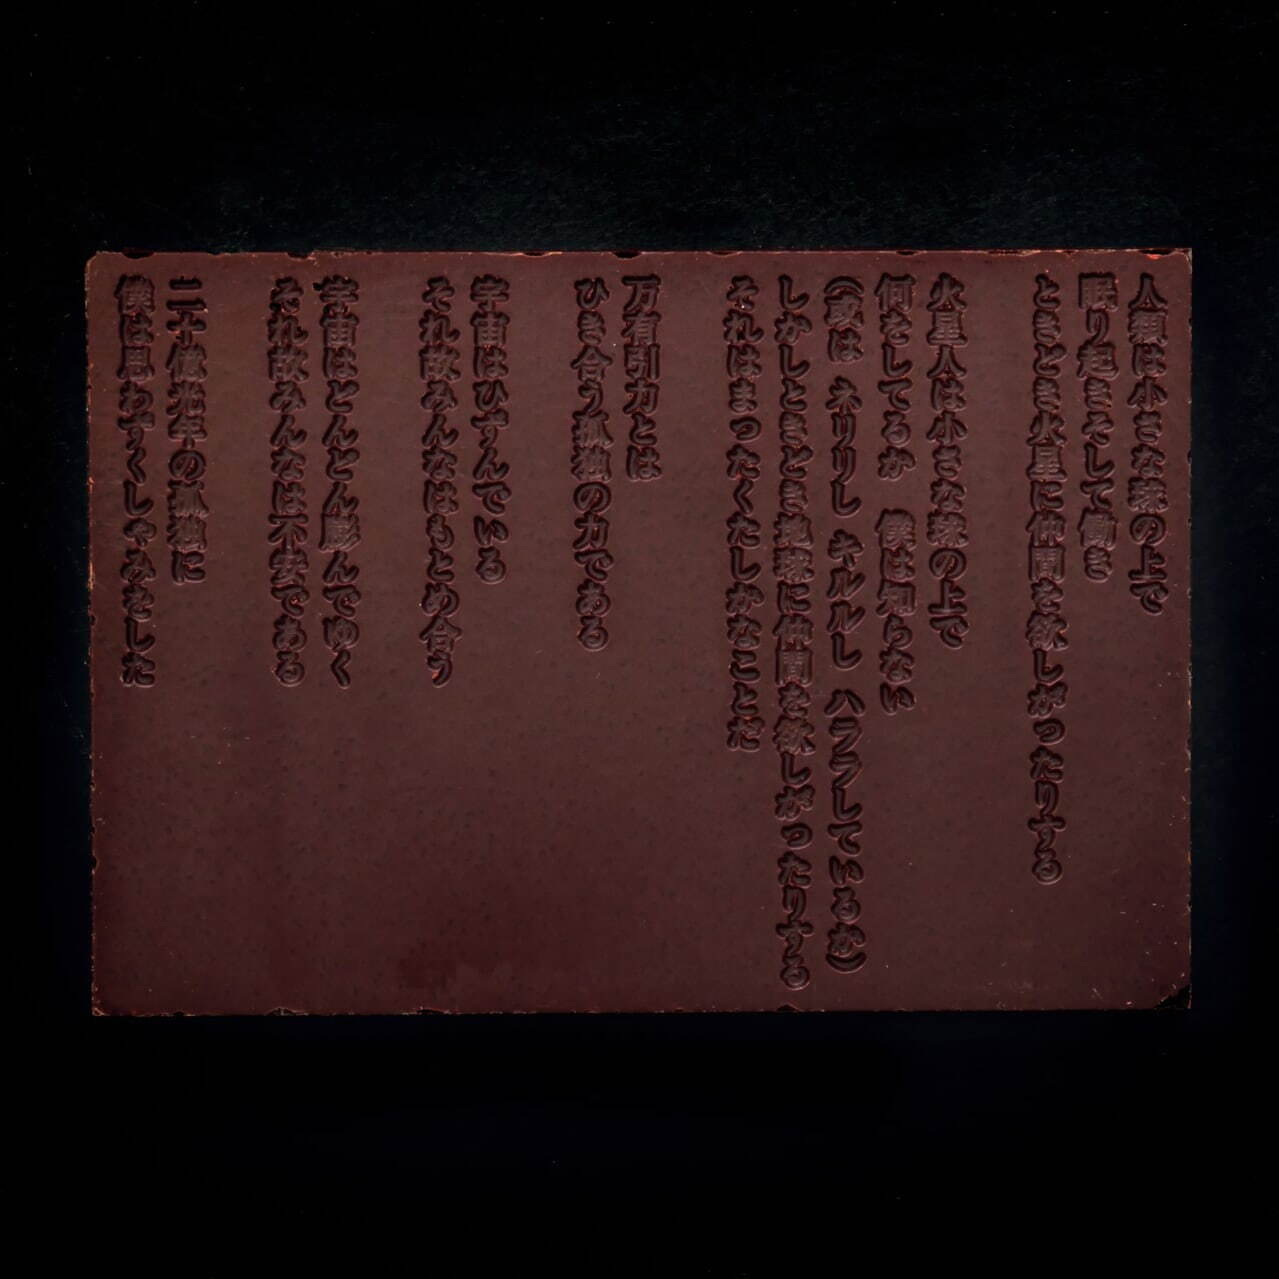 人類は小さな球の上で
眠り起きそして働き
ときどき火星に仲間を欲しがったりする
火星人は小さな球の上で
何をしてるか　僕は知らない
(或は　ネリリし　キルルし　ハララしているか)
しかしときどき地球に仲間を欲しがったりする
それはまったくたしかなことだ
万有引力とは
ひき合う孤独の力である
宇宙はひずんでいる
それ故みんなはもとめ合う
宇宙はどんどん膨んでゆく
それ故みんなは不安である
二十億光年の孤独に
僕は思わずくしゃみをした